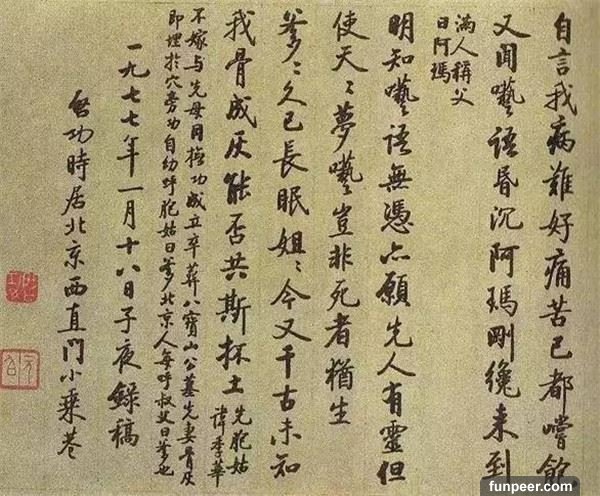 自言我病難好痛苦已都嚐飽
又聞囈語昏沉阿瑪剛纔来到
滿人稱父
曰阿瑪
明知囈語無憑亦願先人有靈但
使天〻夢囈豈非死者猶生
爹〻久已長眠姐〻今又千古未知
我骨成灰能否共斯抔土
先胞姑
諱季華
不嫁与先母同撫功成立卒葬八寶山公墓先妻骨灰
即埋於穴旁功自幼呼胞姑曰爹北京人每呼叔父曰爹也
一九七七年一月十八日子夜錄稿
啓功時居北京西直門小乘巷
funpeer.com